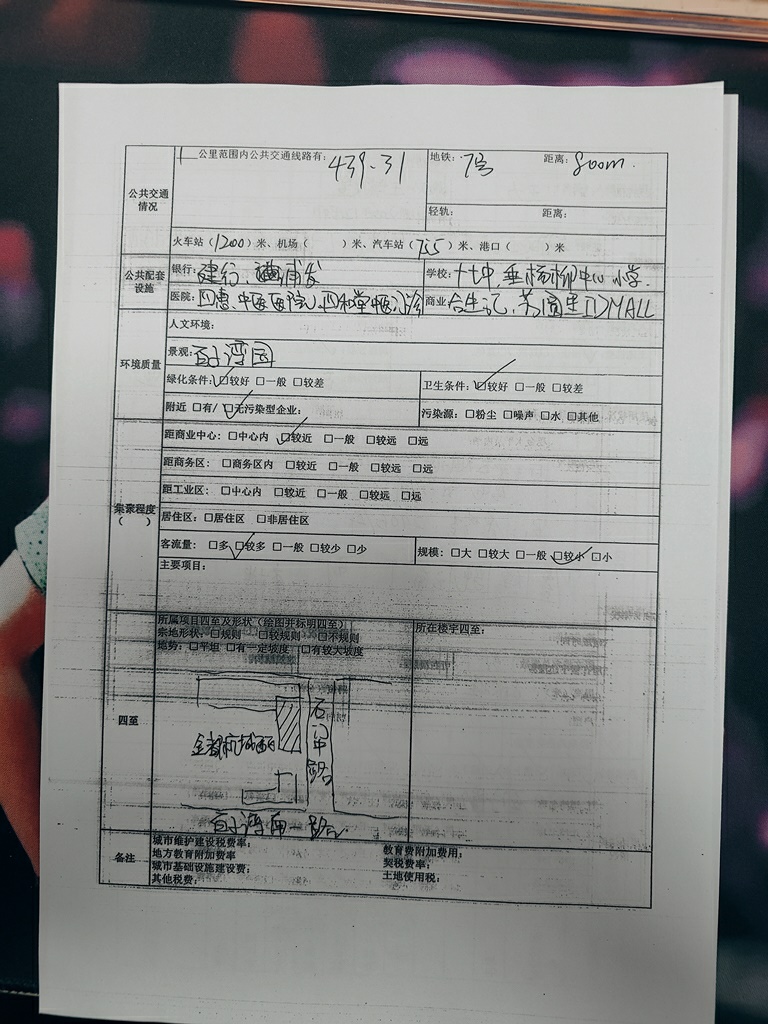 公共交通情况
公里范围内公共交通线路有: 439、31 地铁: 7号 距离: 800m.
轻轨: 距离:
火车站(1200)米、机场( )米、汽车站(755)米、港口( )米
公共配套设施
银行: 建行、浦发 学校: 十七中,垂杨柳中心小学.
医院: 四惠中医医院、四和堂中医门诊 商业 合生汇、IDMALL
环境质量
人文环境:
景观: 百子湾园
绿化条件: ☑较好 □一般 □较差 卫生条件: ☑较好 □一般 □较差
附近 □有/ ☑无污染型企业: 污染源: □粉尘 □噪声 □水 □其他
集聚程度( )
距商业中心: □中心内 ☑较近 □一般 □较远 □远
距商务区: □商务区内 □较近 □一般 □较远 □远
距工业区: □中心内 □较近 □一般 □较远 □远
居住区: □居住区 □非居住区
客流量: □多 ☑较多 □一般 □较少 □少 规模: □大 □较大 □一般 ☑较小 □小
主要项目:
四至
所属项目四至及形状(绘图并标明四至) 所在楼宇四至:
宗地形状: □规则 □较规则 □不规则
地势: □平坦 □有一定坡度 □有较大坡度
石门路
金都杭城西区
百子湾南一路
备注
城市维护建设税费率: 教育费附加费用:
地方教育附加费率 契税费率:
城市基础设施建设费: 土地使用税:
其他税费: